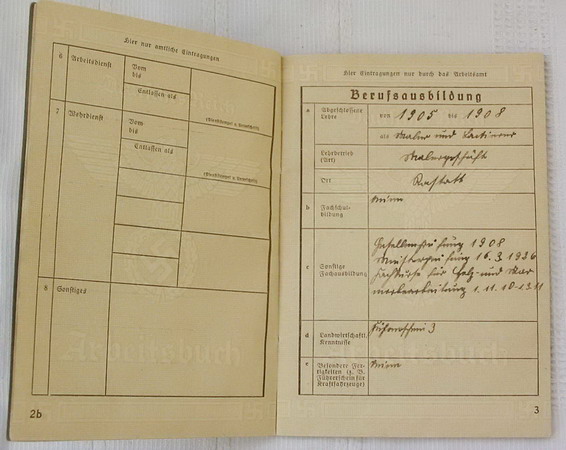 Hier nur amtliche Eintragungen
6 Arbeitsdienst
Vom
bis
Entlassen als
(Dienststempel u. Unterschrift)
7 Wehrdienst
Vom
bis
Entlassen als
(Dienststempel u. Unterschrift)
8 Sonstiges
Arbeitsbuch
2b
Hier Eintragungen nur durch das Arbeitsamt
Berufsausbildung
a Abgeschlossene Lehre
von 1905 bis 1908
als Maler und Lackierer
Lehrbetrieb (Art)
Malergeschäft
Ort
Rastatt
b Fachschulbildung
c Sonstige Fachausbildung
Gesellenprüfung 1908
Meisterprüfung 16.3.1926
Fachkurse für Holz- und Mar
morbearbeitung 1.11.10-1.3.11
d Landwirtschaftl. Kenntnisse
Führerschein 3
e Besondere Fertigkeiten (z. B. Führerschein für Kraftfahrzeuge)
Arbeitsbuch
3